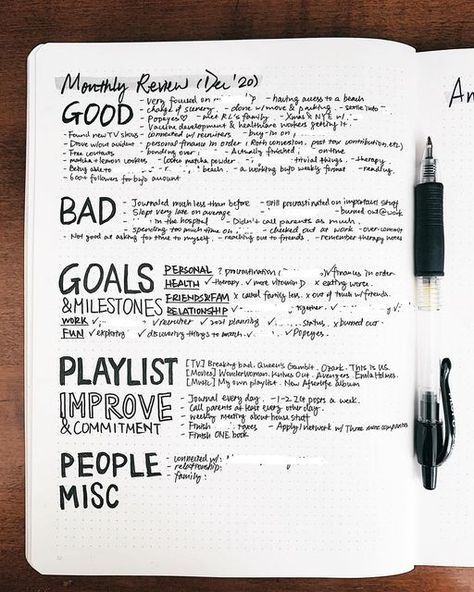 Monthly Review (Dec '20)
An
GOOD
- very focused on - having access to a beach
- change of scenery - done w/ move & packing - settle into
- Popeyes♡ - met RL's family - Xmas & NYE w/
- Vaccine development & healthcare workers getting it
- Found new TV shows - connected w/ recruiters - buy-in on
- Drove w/out incident - personal finance in order (Roth conversion, post tax contribution, etc.)
- Free contacts - bonding over - Actually finished - on time
- matcha + lemon cookies - matcha powder - trivial things - therapy
- Being able to - beach - a working bujo weekly format - reading
- 600+ followers for bujo account
BAD
- Journaled much less than before - still procrastinated on important stuff
- Slept very late on average - burned out @ work
- in the hospital - Didn't call parents as much
- spending too much time on - checked out at work - over commit
- Not good at asking for time to myself - reaching out to friends - remember therapy notes
GOALS
& MILESTONES
PERSONAL ? procrastination ( ) ✓ finances in order
HEALTH ✓ therapy ✓ more vitamin D x eating worse
FRIENDS&FAM x called family less x out of touch w/ friends
RELATIONSHIP ✓ together ✓
WORK ✓ ✓ recruiter ✓ 2021 planning ✓ status x burned out
FUN ✓ exploring ✓ discovering things to watch ✓ ✓ Popeyes
PLAYLIST
[TV] Breaking bad. Queen's Gambit. Ozark. This is US.
[Movies] WonderWoman. Knives Out. Avengers. Enola Holmes.
[Music] My own playlist. New Afterlife album
IMPROVE
& COMMITMENT
- Journal every day - 1-2 IG posts a week.
- Call parents at least every other day.
- Weekly meeting about house stuff
- Finish taxes - Apply/network w/ Three more companies
- Finish ONE book
PEOPLE
- connected w/:
- relationship:
- family:
MISC